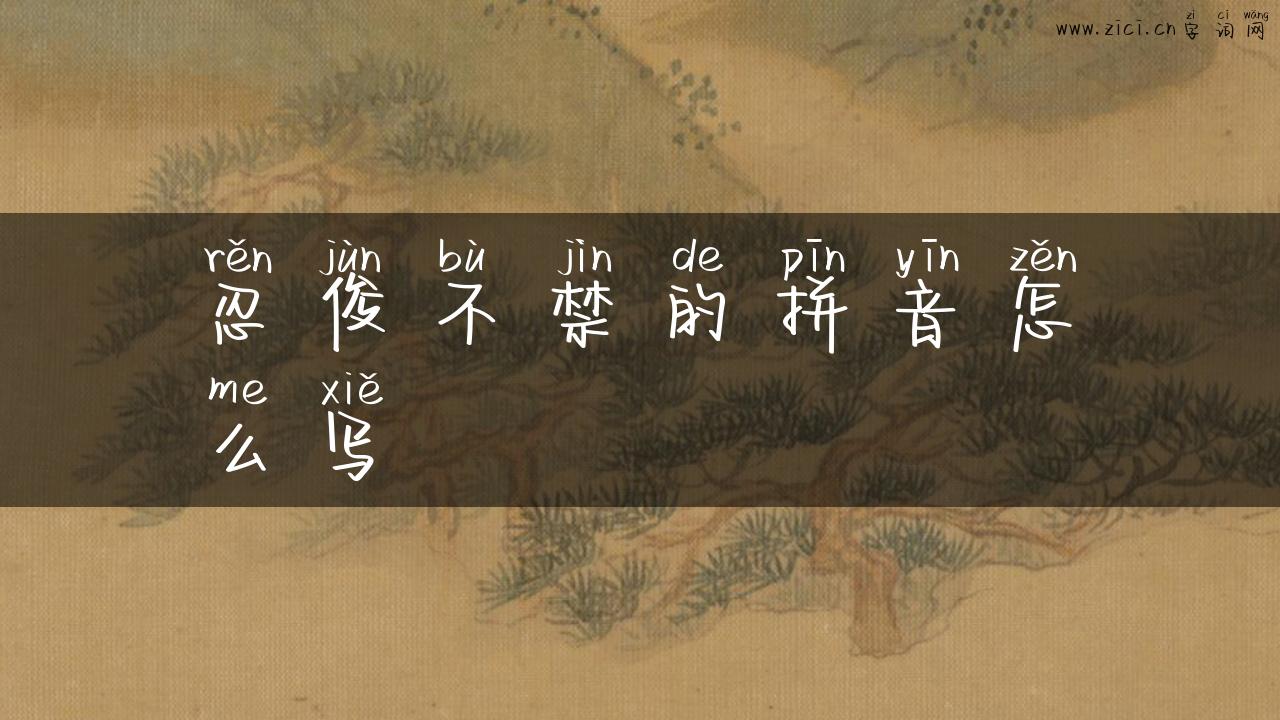 zì cí wǎng
www.zici.cn 字 词 网
rěn jùn bù jìn de pīn yīn zěn
忍 俊 不 禁 的 拼 音 怎
me xiě
么 写